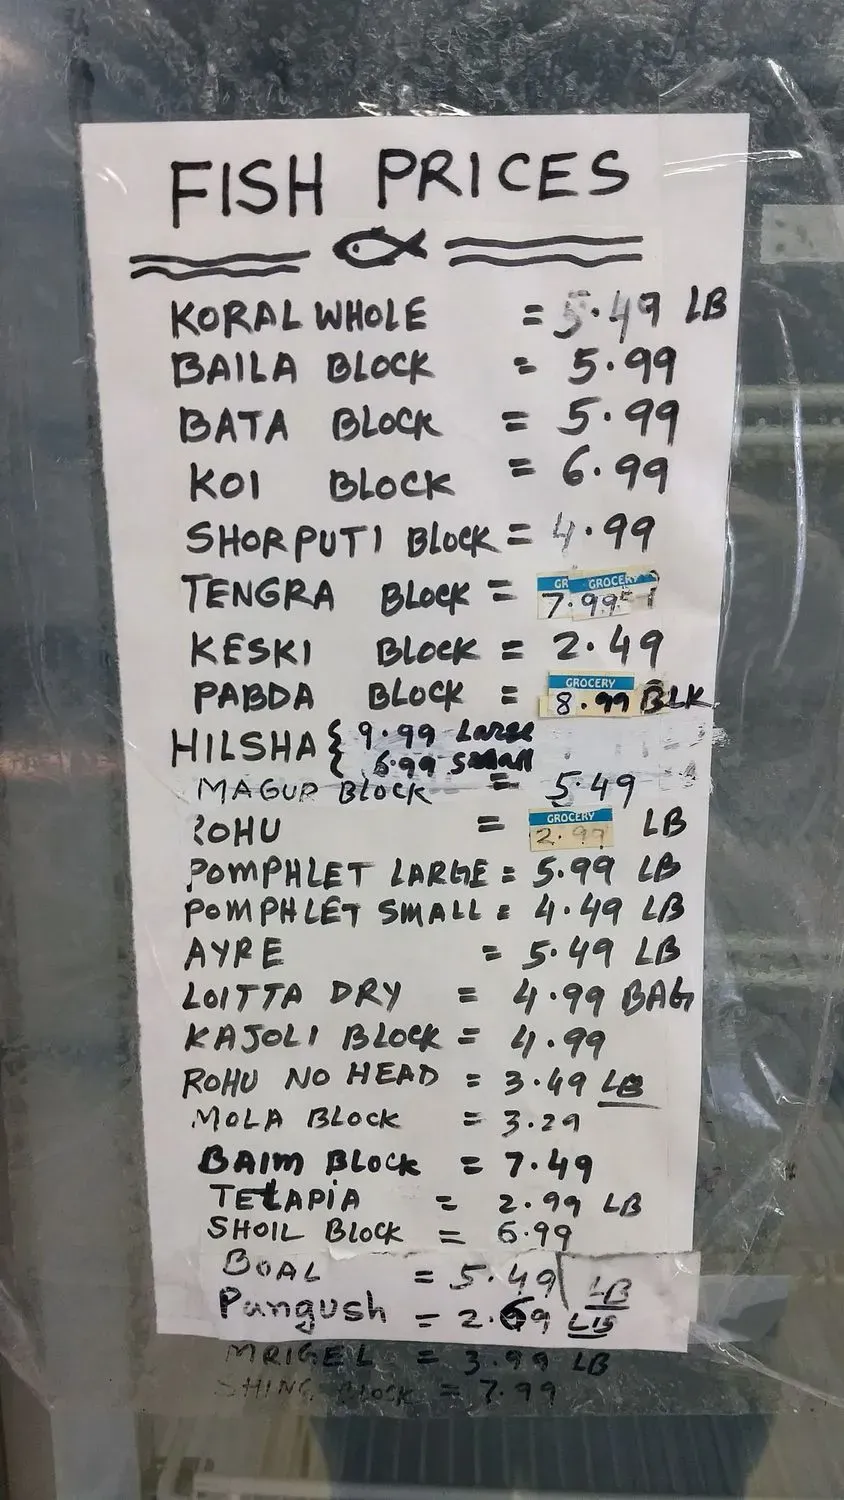 FISH PRICES
KORAL WHOLE = 5.49 LB
BAILA BLOCK = 5.99
BATA BLOCK = 5.99
KOI BLOCK = 6.99
SHORPUTI BLOCK = 4.99
TENGRA BLOCK = GR GROCERY 7.99
KESKI BLOCK = 2.49
PABDA BLOCK = GROCERY 8.99 BLK
HILSHA { 9.99 Large
{ 6.99 small
MAGUR BLOCK = 5.49
ROHU = GROCERY 2.99 LB
POMPHLET LARGE = 5.99 LB
POMPHLET SMALL = 4.49 LB
AYRE = 5.49 LB
LOITTA DRY = 4.99 BAG
KAJOLI BLOCK = 4.99
ROHU NO HEAD = 3.49 LB
MOLA BLOCK = 3.29
BAIM BLOCK = 7.49
TELAPIA = 2.99 LB
SHOIL BLOCK = 6.99
BOAL = 5.49 LB
Pangush = 2.69 LB
MRIGEL = 3.99 LB
SHING BLOCK = 7.99